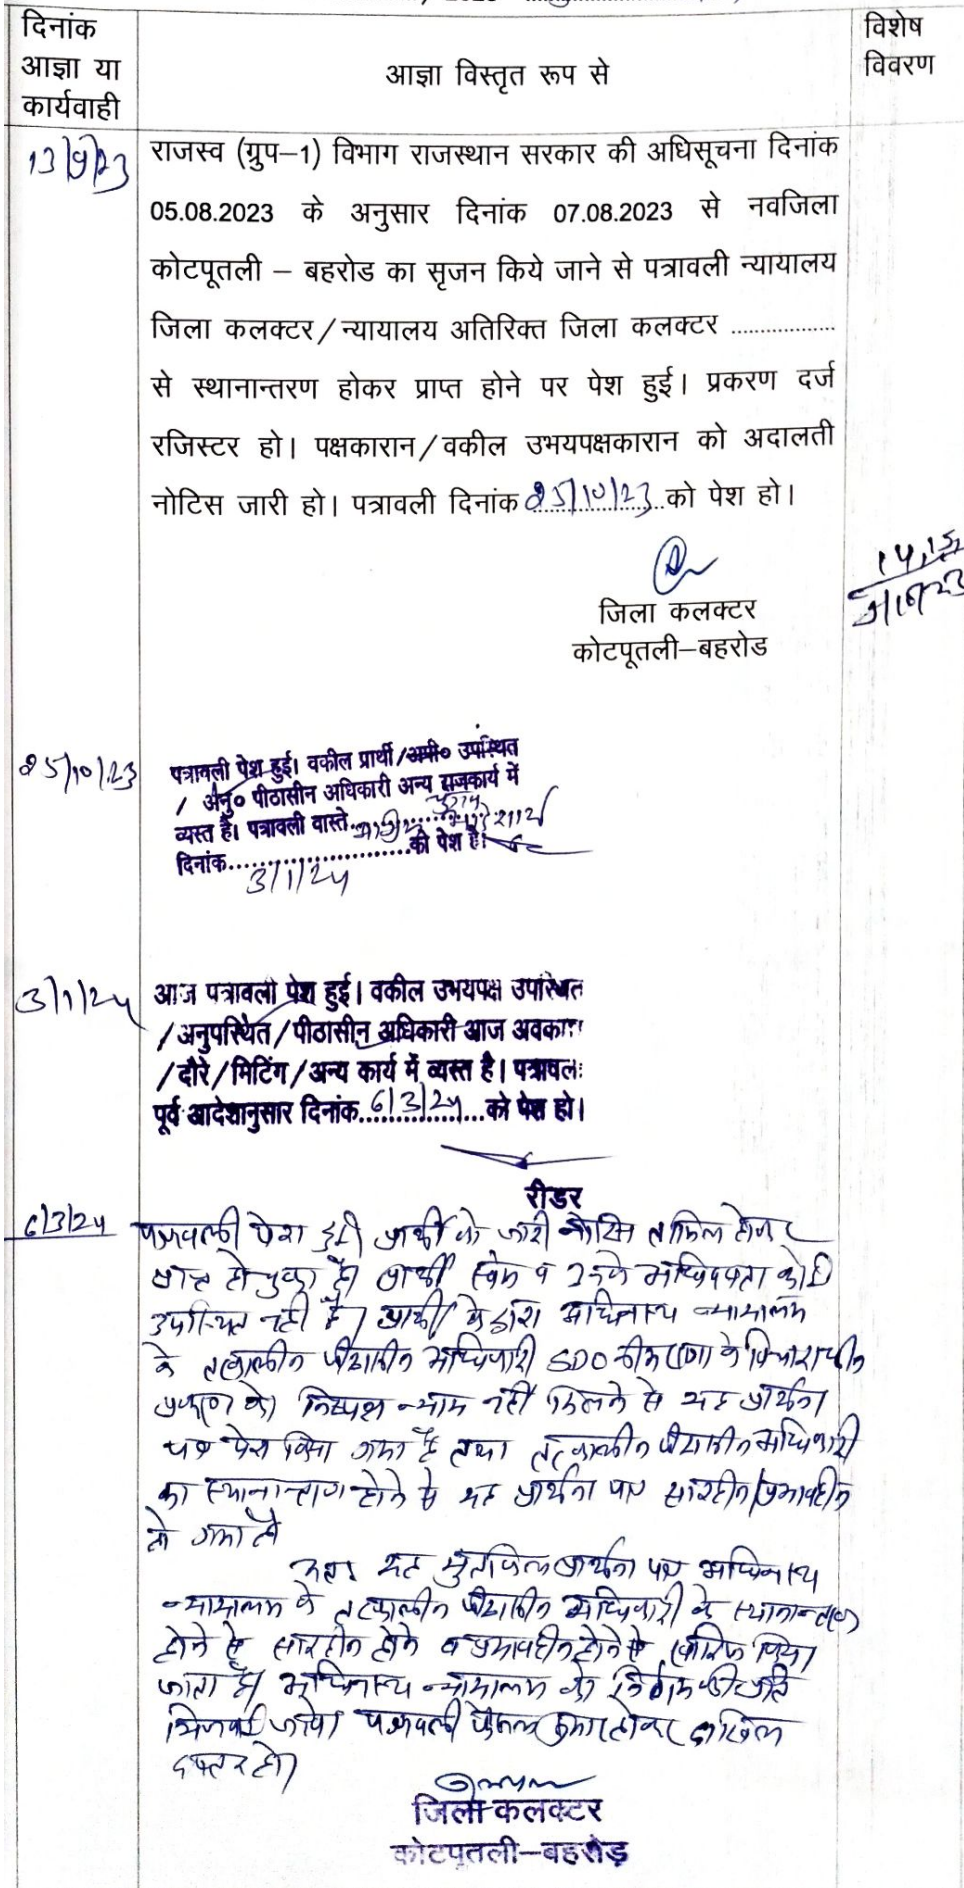 दिनांक
आज्ञा या
कार्यवाही
आज्ञा विस्तृत रूप से
विशेष
विवरण
13/9/23
राजस्व (ग्रुप–1) विभाग राजस्थान सरकार की अधिसूचना दिनांक
05.08.2023 के अनुसार दिनांक 07.08.2023 से नवजिला
कोटपूतली – बहरोड का सृजन किये जाने से पत्रावली न्यायालय
जिला कलक्टर/न्यायालय अतिरिक्त जिला कलक्टर ..................
से स्थानान्तरण होकर प्राप्त होने पर पेश हुई। प्रकरण दर्ज
रजिस्टर हो। पक्षकारान/वकील उभयपक्षकारान को अदालती
नोटिस जारी हो। पत्रावली दिनांक 25/10/23 को पेश हो।
जिला कलक्टर
कोटपूतली–बहरोड
25/10/23
पत्रावली पेश हुई। वकील प्रार्थी/अप्री० उपस्थित
/ अनु० पीठासीन अधिकारी अन्य राजकार्य में
व्यस्त है। पत्रावली वास्ते
दिनांक..........................को पेश हो।
3/1/24
3/1/24
आज पत्रावली पेश हुई। वकील उभयपक्ष उपस्थित
/अनुपस्थित/पीठासीन अधिकारी आज अवका
/दौरे/मिटिंग/अन्य कार्य में व्यस्त है। पत्रावल
पूर्व आदेशानुसार दिनांक..6/3/24...को पेश हो।
रीडर
6/3/24
पत्रावली पेश हुई प्रार्थी को जारी नोटिस तामिल होकर
प्राप्त हो चुका है। प्रार्थी स्वंम व उनके अधिवक्ता कोई
उपस्थित नहीं है। प्रार्थी के द्वारा अधिनस्थ न्यायालय
के तत्कालीन पीठासीन अधिकारी SDO नीमराणा के विचाराधीन
प्रकरण को निष्पक्ष न्याय नहीं मिलने से यह प्रार्थना
पत्र पेश किया गया है तथा तत्कालीन पीठासीन अधिकारी
का स्थानान्तरण होने से यह प्रार्थना पत्र सारहीन/प्रभावहीन
हो गया है
अतः यह मुतफिल प्रार्थना पत्र अधिनस्थ
न्यायालय के तत्कालीन पीठासीन अधिकारी के स्थानान्तरण
होने से सारहीन होने व प्रभावहीन होने से खारिज किया
जाता है। अधिनस्थ न्यायालय को निर्णय की प्रति
भिजवाई जावे। पत्रावली फैसल शुमार होकर दाखिल
दफ्तर हो।
जिला कलक्टर
कोटपूतली–बहरोड़